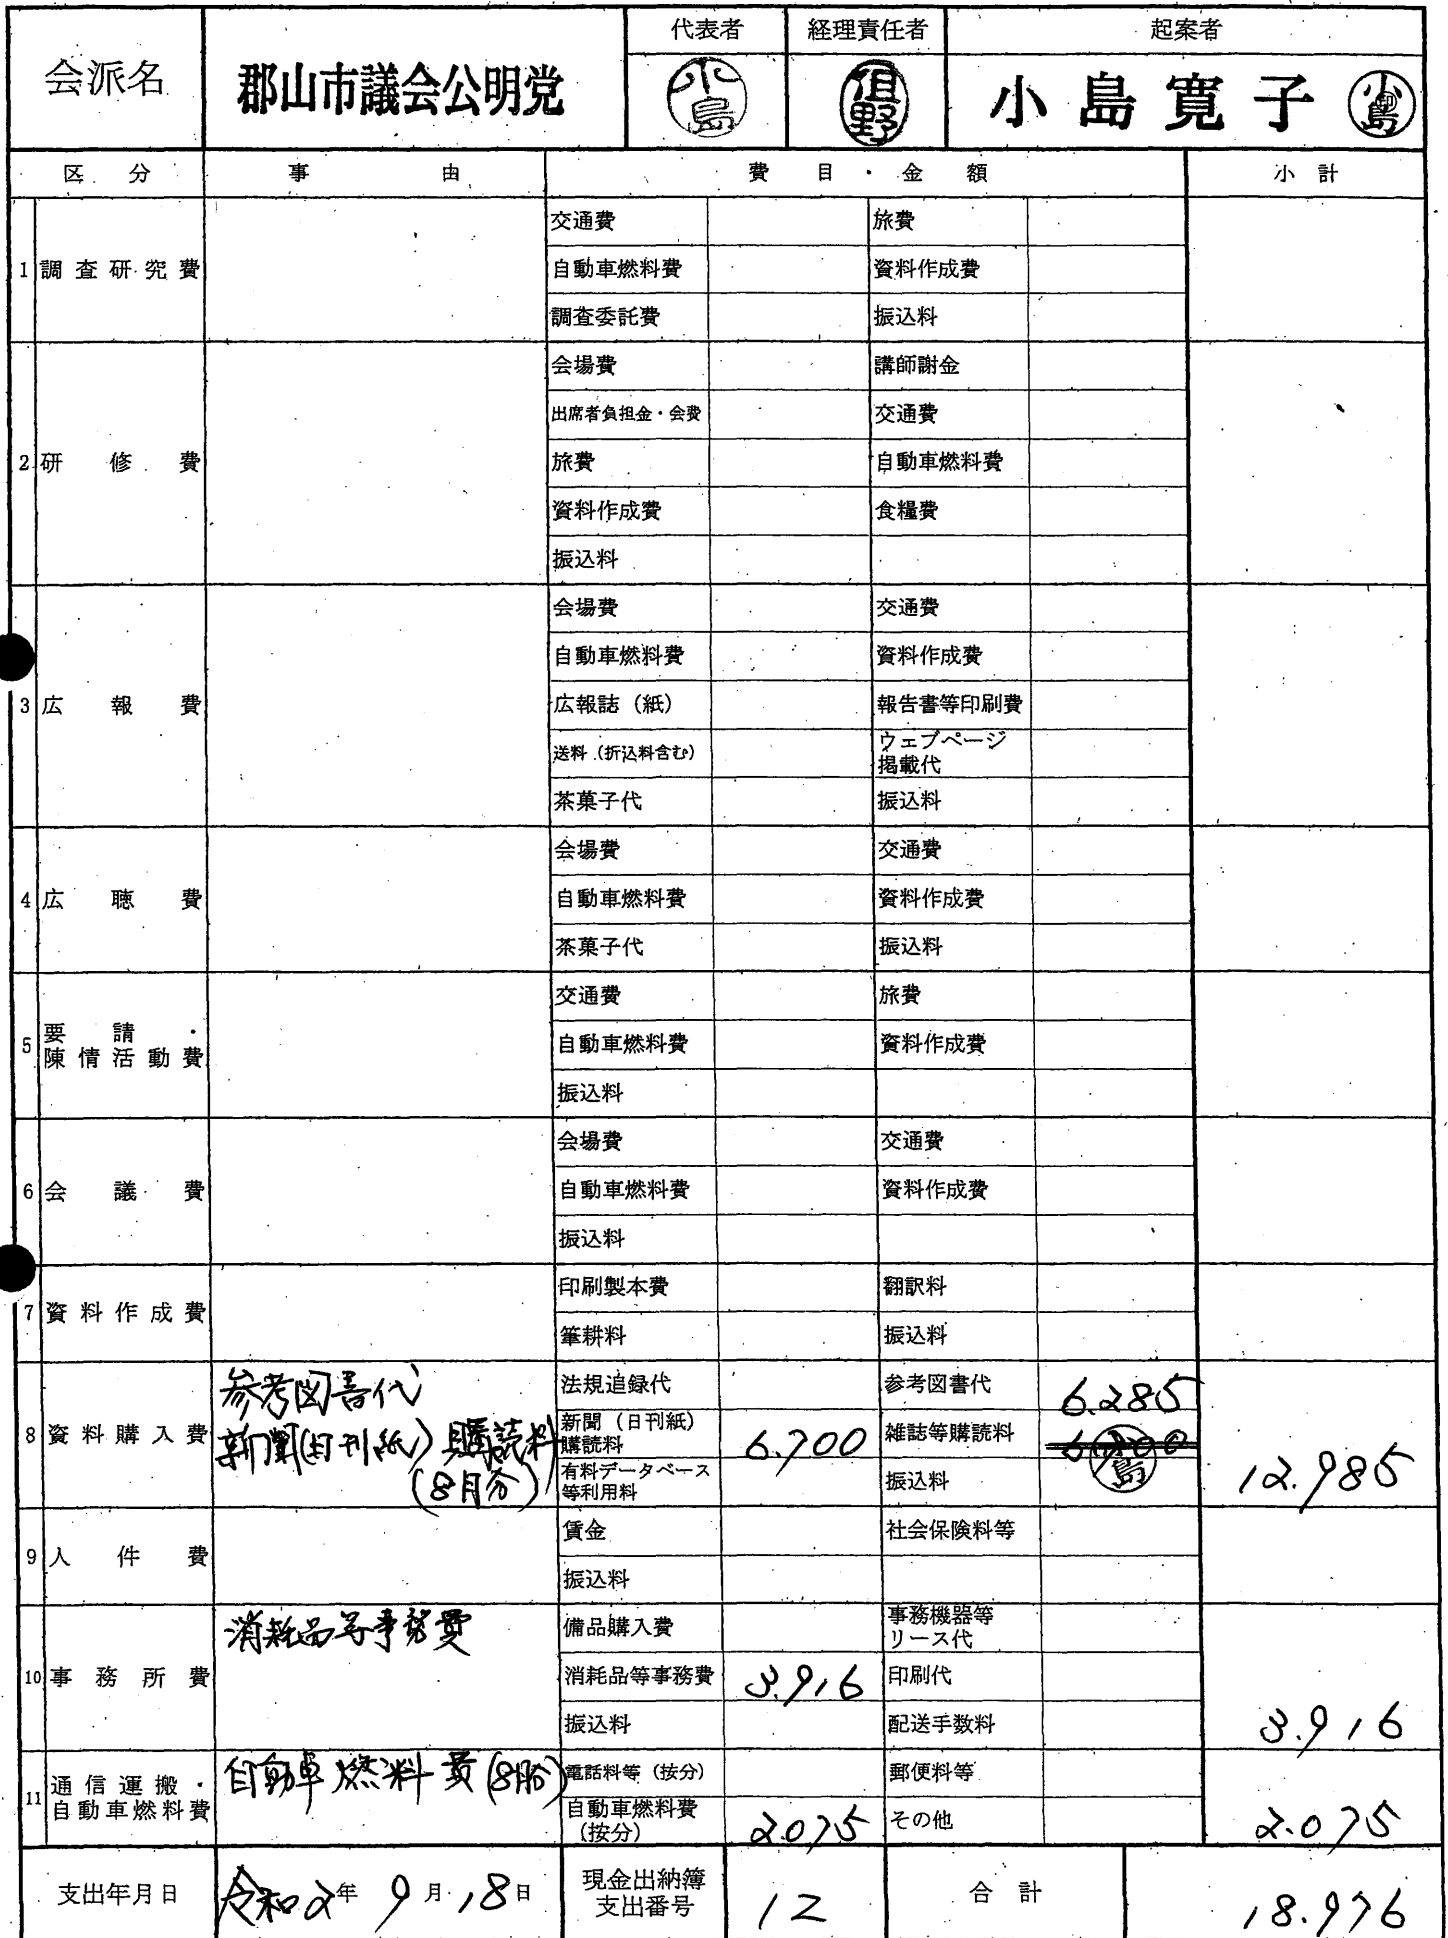 会派名 郡山市議会公明党 代表者 経理責任者 起案者
小島 俎野 小島寛子 小島
区分 事由 費目・金額 小計
1 調査研究費 交通費 旅費
自動車燃料費 資料作成費
調査委託費 振込料
2 研修費 会場費 講師謝金
出席者負担金・会費 交通費
旅費 自動車燃料費
資料作成費 食糧費
振込料
3 広報費 会場費 交通費
自動車燃料費 資料作成費
広報誌(紙) 報告書等印刷費
送料(折込料含む) ウェブページ
掲載代
茶菓子代 振込料
4 広聴費 会場費 交通費
自動車燃料費 資料作成費
茶菓子代 振込料
5 要請・
陳情活動費
交通費 旅費
自動車燃料費 資料作成費
振込料
6 会議費 会場費 交通費
自動車燃料費 資料作成費
振込料
7 資料作成費 印刷製本費 翻訳料
筆耕料 振込料
8 資料購入費 参考図書代
新聞(日刊紙)購読料
(8月分)
法規追録代 参考図書代 6.285
新聞(日刊紙)
購読料 6.700 雑誌等購読料 島
有料データベース
等利用料 振込料 12.985
9 人件費 賃金 社会保険料等
振込料
10 事務所費 消耗品等事務費
備品購入費 事務機器等
リース代
消耗品等事務費 3.916 印刷代
振込料 配送手数料 3.916
11 通信運搬・
自動車燃料費
自動車燃料費(8月分)
電話料等(按分) 郵便料等
自動車燃料費
(按分) 2.075 その他 2.075
支出年月日 令和2年9月18日 現金出納簿
支出番号 12 合計 18.976